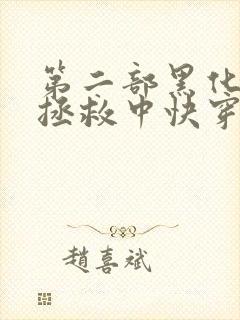 第二部黑化
拯救中快穿
趙喜斌